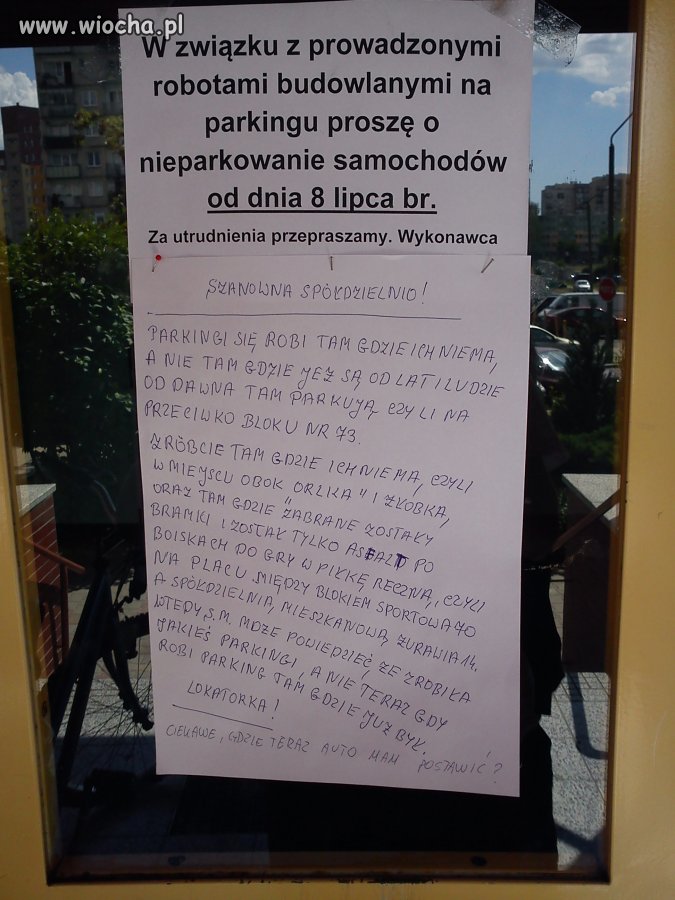 www.wiocha.pl
W związku z prowadzonymi
robotami budowlanymi na
parkingu proszę o
nieparkowanie samochodów
od dnia 8 lipca br.
Za utrudnienia przepraszamy. Wykonawca
SZANOWNA SPÓŁDZIELNIO!
PARKINGI SIĘ ROBI TAM GDZIE ICH NIEMA,
A NIE TAM GDZIE JEŻ SĄ OD LAT I LUDZIE
OD DAWNA TAM PARKUJĄ, CZYLI NA
PRZECIWKO BLOKU NR 73.
ZRÓBCIE TAM GDZIE ICH NIEMA, CZYLI
W MIEJSCU OBOK "ORLIKA" I ŻŁOBKA,
ORAZ TAM GDZIE ZABRANE ZOSTAŁY
BRAMKI I ZOSTAŁ TYLKO ASFALT PO
BOISKACH DO GRY W PIŁKĘ RĘCZNĄ, CZYLI
NA PLACU MIĘDZY BLOKIEM SPORTOWA 70
A SPÓŁDZIELNIĄ MIESZKANOWĄ ŻURAWIA 14.
WTEDY S.M. MOŻE POWIEDZIEĆ, ŻE ZROBIŁA
JAKIEŚ PARKINGI, A NIE TERAZ GDY
ROBI PARKING TAM GDZIE JUŻ BYŁ.
LOKATORKA!
CIEKAWE, GDZIE TERAZ AUTO MAM POSTAWIĆ?